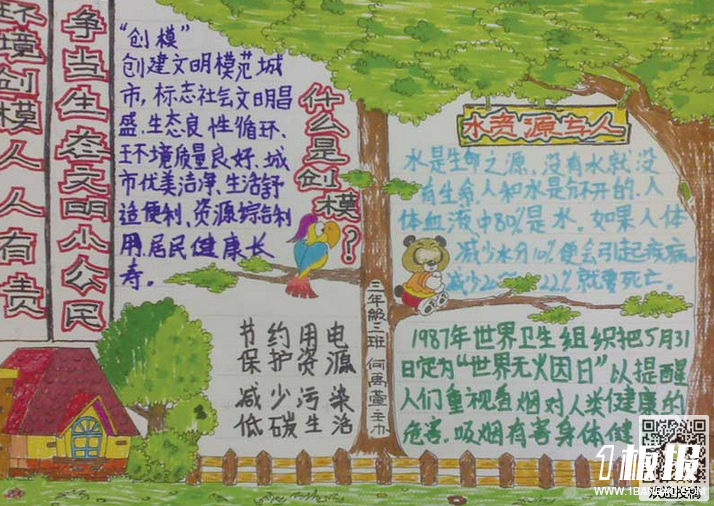 环境创模人人有责
争当生态文明小公民
“创模”
创建文明模范城
市，标志社会文明昌
盛、生态良性循环、
环境质量良好、城
市优美洁净、生活舒
适便利、资源综合利
用、居民健康长
寿。
什么是创模？
水资源与人
水是生命之源，没有水就没
有生命，人和水是分不开的，人
体血液中80%是水，如果人体
减少水分10%便会引起疾病，
22%就要死亡。
三年级三班
节约用电
保护资源
减少污染
低碳生活
1987年世界卫生组织把5月31
日定为“世界无火因日”以提醒
人们重视香烟对人类健康的
危害。吸烟有害身体健
1板报
WWW.1BANBAO.COM
欢迎投稿